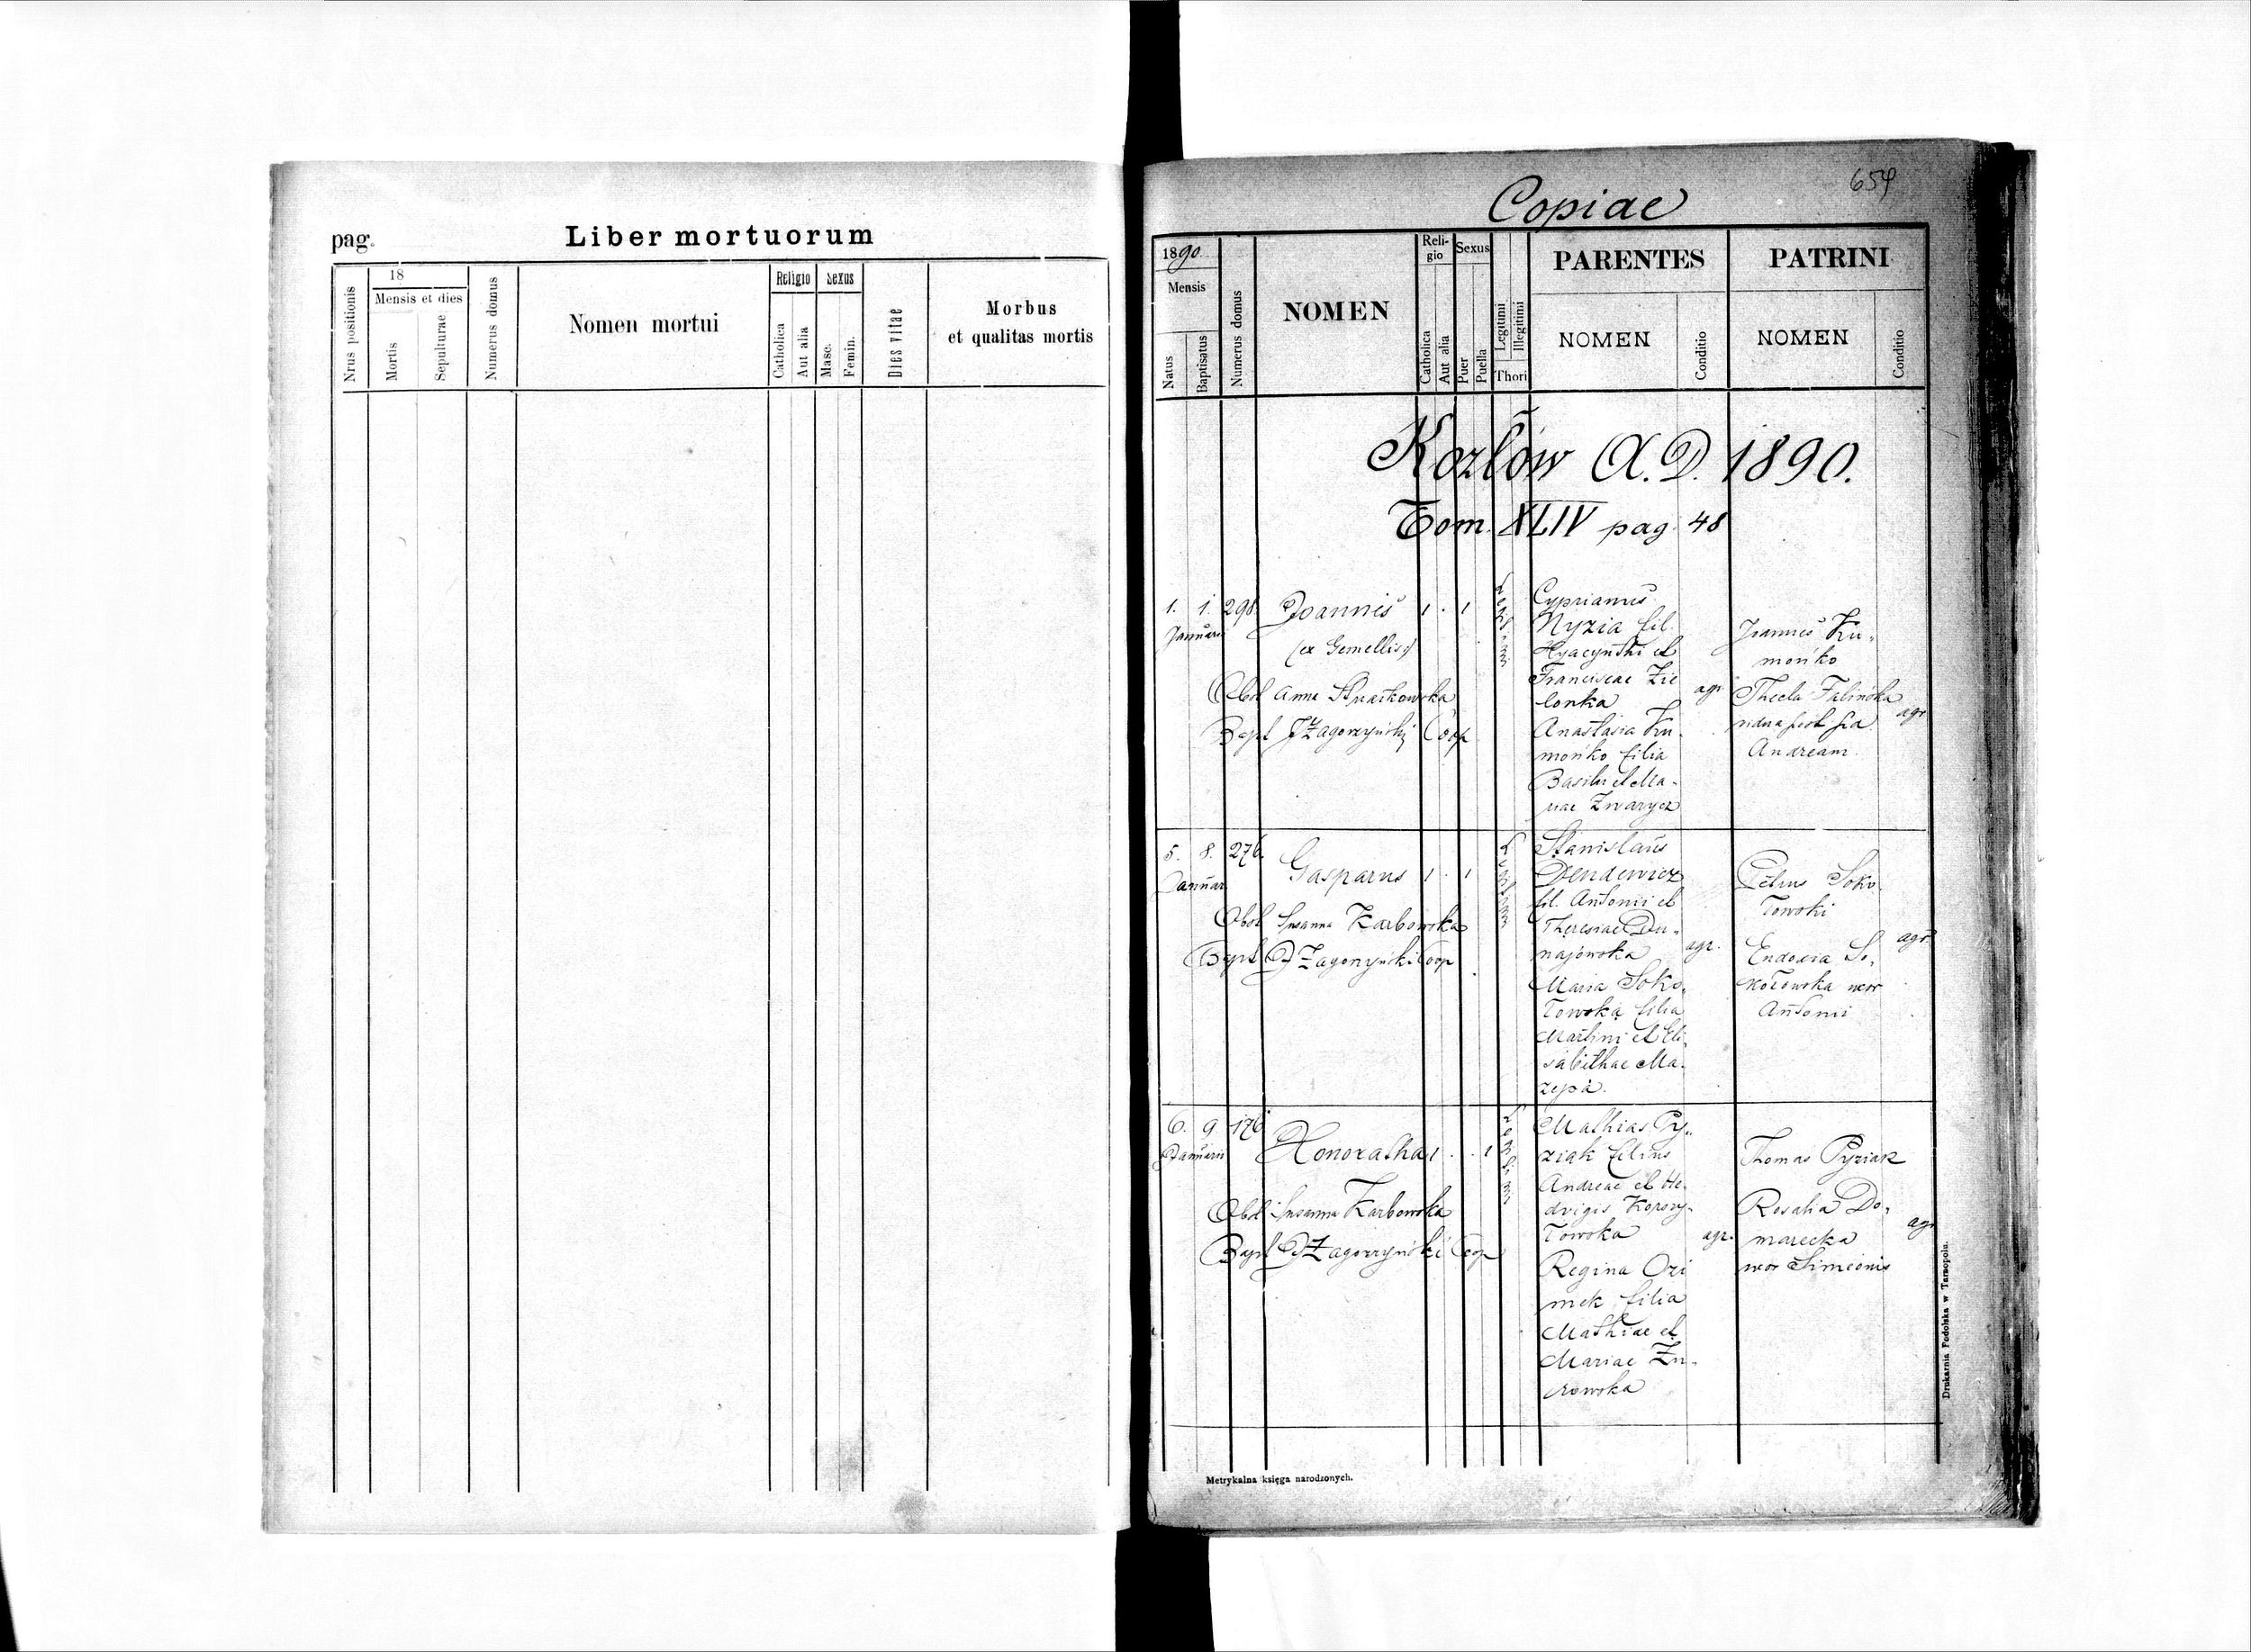 pag.
Liber mortuorum
Nrus positionis
18
Mensis et dies
Mortis
Sepulturae
Numerus domus
Nomen mortui
Religio
Catholica
Aut alia
Sexus
Masc.
Femin.
Dies vitae
Morbus
et qualitas mortis
Copiae
659
1890
Mensis
Natus
Baptisatus
Numerus domus
NOMEN
Reli-
gio
Catholica
Aut alia
Sexus
Puer
Puella
Legitimi
Illegitimi
Thori
PARENTES
NOMEN
Conditio
PATRINI
NOMEN
Conditio
Kozłów A.D. 1890.
Tom. XLIV pag. 48
1. 1. 298 Joannes 1 . 1
Januarii
(ex Gemellis)
Obst Anna
Bapt J Zagorzyński Coop
Legitimi
Cyprianus
Nyzia fil.
Hyacynthi et
Franciscae Zie
lonka
Anastasia Ku-
mońko filia
Basilii et Ma-
riae Zwarycz
agr.
Joannes Ku-
mońko
Thecla Falinska
vidua post
Andream
agr
5. 8. 276 Gasparus 1 . 1
Januar
Obst Susanna Karbowska
Bapt J Zagorzyński Coop
Legitimi
Stanislaus
Dendewicz
fil. Antonii et
Theresiae Du-
najowska
Maria Soko-
łowska filia
Martini et Eli-
sabethae Ma-
zepa.
agr.
Petrus Soko-
łowski
Eudoxia So-
kołowska uxor
Antonii
agr
6. 9 176 Honoratha 1 . . 1
Januarii
Obst Susanna Karbowska
Bapt J Zagorzyński Coop
Legitimi
Mathias Py-
ziak filius
Andreae et He-
dvigis Korczy-
łowska
Regina Ozi
mek filia
Mathiae et
Mariae Zu-
rowska
agr.
Thomas Pyziak
Rosalia Do-
marecka
uxor Simeonis
agr
Metrykalna księga narodzonych.
Drukarnia Podolska w Tarnopolu.